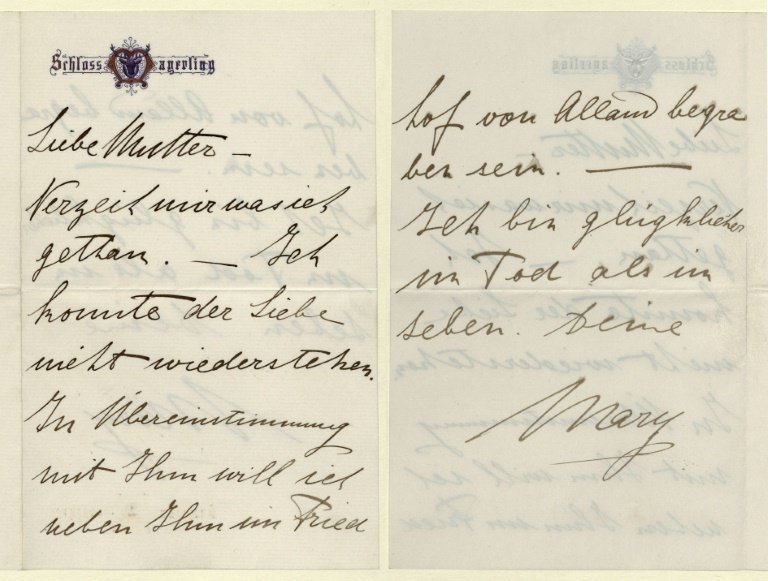 Schloss Mayerling
Liebe Mutter –
Verzeih mir was ich
gethan. – Ich
konnte der Liebe
nicht wiederstehen.
In Übereinstimmung
mit Ihm will ich
neben Ihm im Fried
hof von Alland begra
ben sein. –
Ich bin glüglicher
im Tod als im
Leben. Deine
Mary